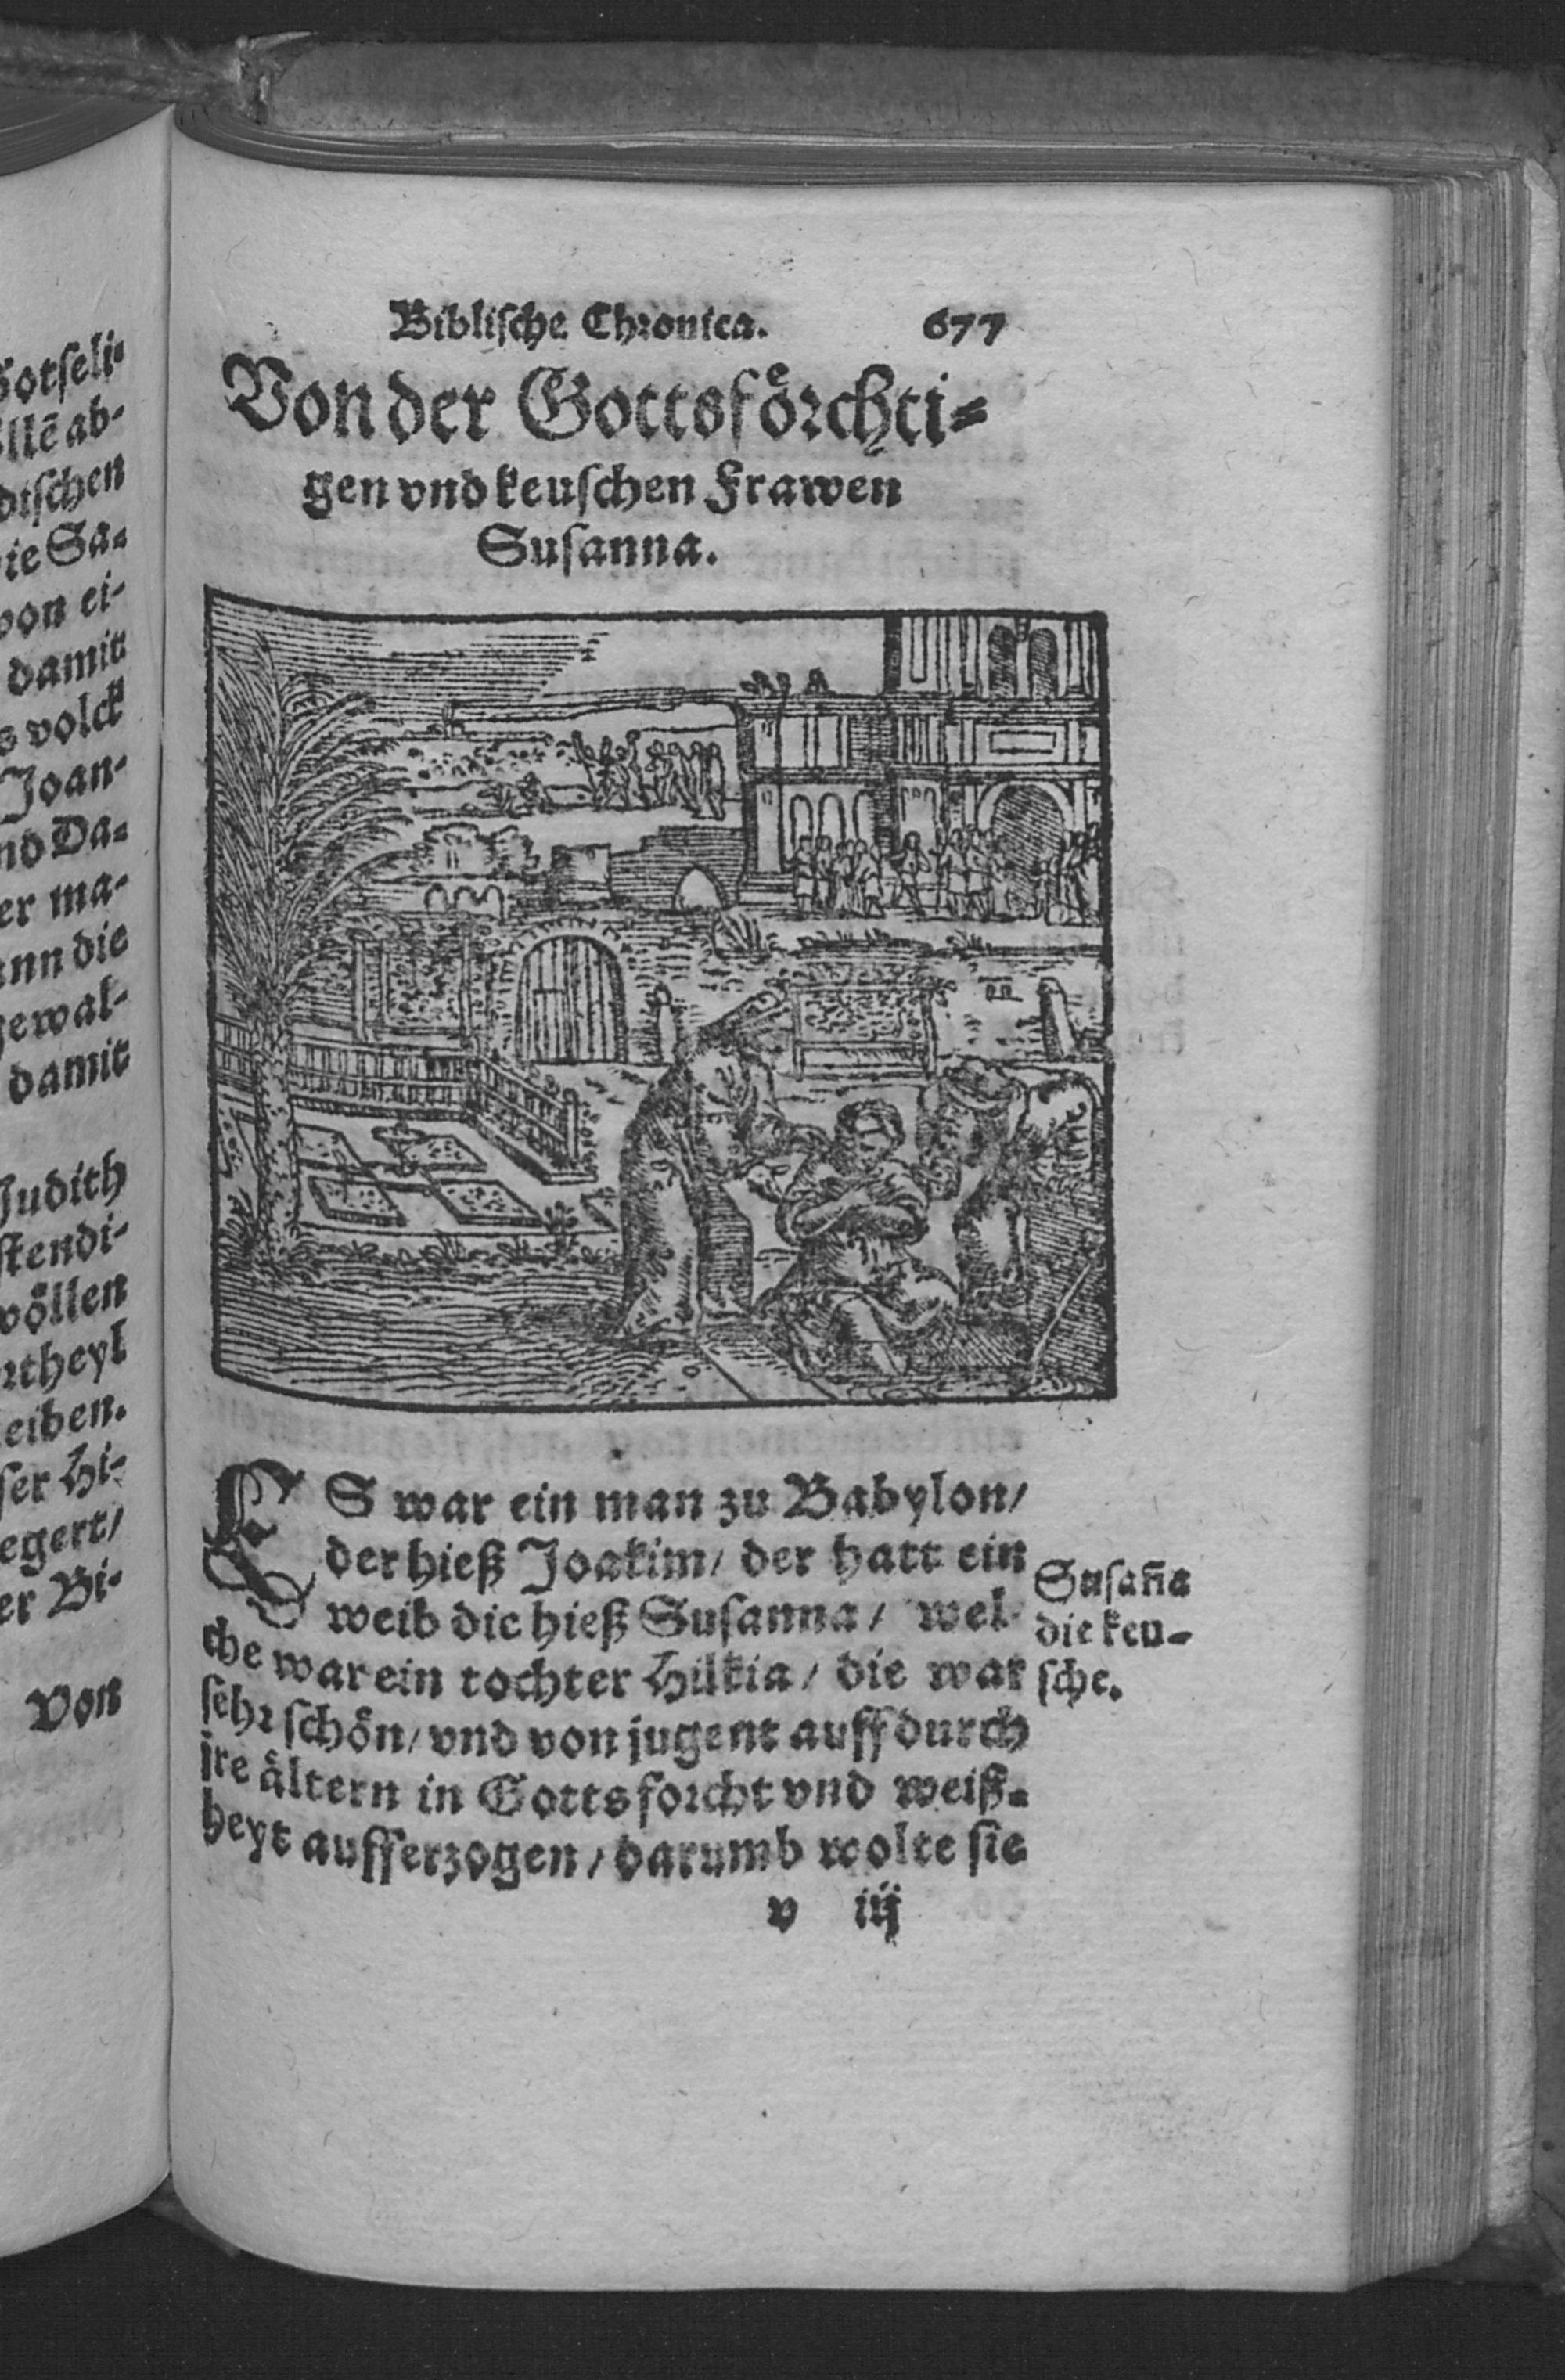 Gotseli-
llē ab-
dischen
ie Sa-
von ei-
damit
s volck
Joan-
nd Da-
er ma-
ann die
gewal-
damit
Judith
stendi-
wöllen
rtheyl
eiben.
ser Hi-
egert/
er Bi-
Von
Biblische Chronica. 677
Von der Gottsfoͤrchti-
gen vnd keuschen Frawen
Susanna.
ES war ein man zu Babylon/
der hieß Joakim/ der hatt ein
weib die hieß Susanna/ wel-
che war ein tochter Hilkia/ die war
sehr schoͤn/ vnd von jugent auff durch
jre aͤltern in Gotts forcht vnd weiß-
heyt aufferzogen/ darumb wolte sie
Susan̄a
die keu-
sche.
v iij